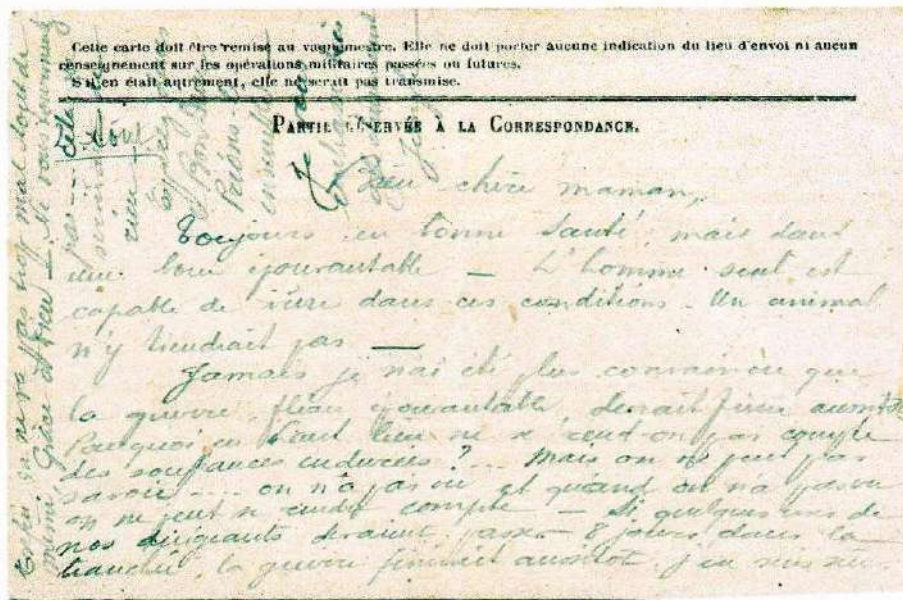 Cette carte doit être remise au vaguemestre. Elle ne doit porter aucune indication du lieu d'envoi ni aucun
renseignement sur les opérations militaires passées ou futures.
S'il en était autrement, elle ne serait pas transmise.
PARTIE RÉSERVÉE À LA CORRESPONDANCE.
Bien chère maman,
Toujours en bonne santé, mais dans
une boue épouvantable — L'homme seul est
capable de vivre dans ces conditions. Un animal
n'y tiendrait pas —
Jamais je n'ai été plus convaincu que
la guerre, fléau épouvantable, devrait finir aussitôt
Pourquoi en haut lieu ne se rend-on pas compte
des souffrances endurées ?... Mais on ne peut pas
savoir .... on n'a pas vu et quand on n'a pas vu
on ne peut se rendre compte — Si quelques uns de
nos dirigeants devaient passer 8 jours dans la
tranchée, la guerre finirait aussitôt, j'en suis sûr.
Enfin, ça ne va pas trop mal tout de
même, Grâce à Dieu — Ne vous tourmentez
pas